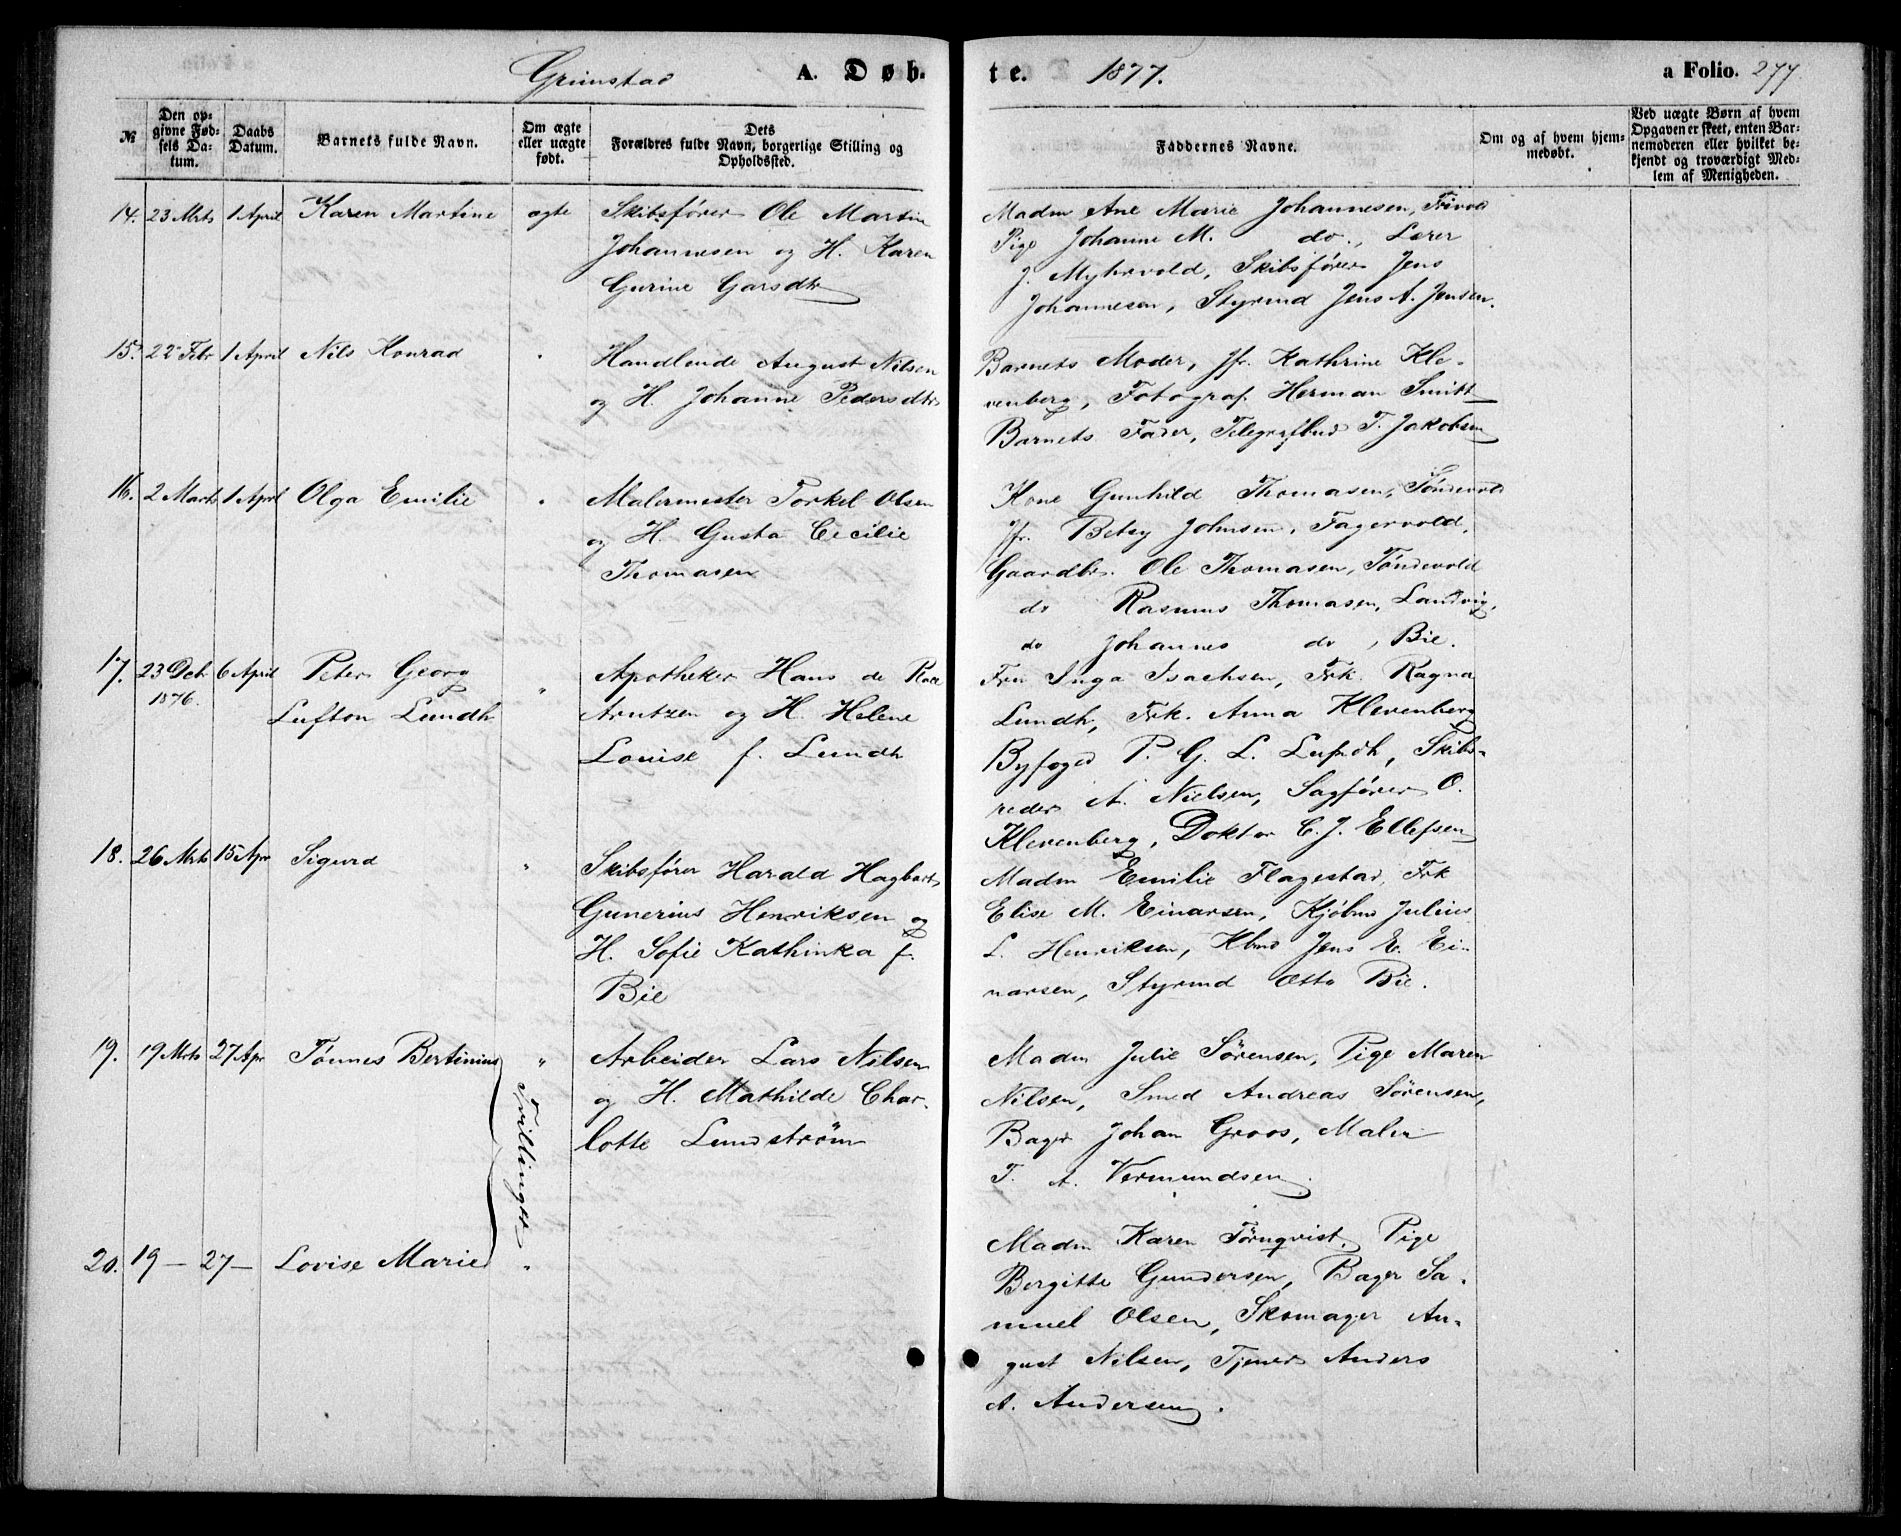 Grimstad A. Døbte. 1877. a Folio. 277.
№ Den opgivne Fødsels Datum. Daabs Datum. Barnets fulde Navn. Om ægte eller uægte født. Dets Forældres fulde Navn, borgerlige Stilling og Opholdssted. Faddernes Navne. Om og af hvem hjemmedøbt. Ved uægte Børn af hvem Opgaven er skeet, enten Barnemoderen eller hvilket bekjendt og troværdigt Medlem af Menigheden.
14. 23 Mrts 1 April Karen Martine ægte Skibsfører Ole Martin
Johannesen og H. Karen
Gurine Garsdtr
Madm Ane Marie Johannesen, Frivold
Pige Johanne M. do., Lærer
J. Myhrvold, Skibsfører Jens
Johannesen, Styrmd Jens A. Jensen.
15. 22 Febr 1 April Nils Konrad " Handlende August Nilsen
og H. Johanne Pedersdtr
Barnets Moder, Jfr. Kathrine Kle-
venberg, Fotograf Herman Smitt
Barnets Fader, Telegrafbud T. Jakobsen
16. 2 Marts 1 April Olga Emilie " Malermester Torkel Olsen
og H. Gusta Cecilie
Thomasen
Kone Gunhild Thomasen, Tøndevold
Jfr. Betsy Johnsen, Fagervold,
Gaardbr. Ole Thomasen, Tøndevold
do Rasmus Thomasen, Landvig,
do Johannes do, Bie.
17. 23 Dcb 1876. 6 April Peter Georg
Lufton Lundh
" Apotheker Hans de
Arntzen og H. Helene
Louise f. Lundh
Fru Inga Isachsen, Frk. Ragna
Lundh, Frk. Anna Klevenberg
Byfoged P. G. L. Lundh, Skibs-
reder A. Nielsen, Sagfører O.
Klevenberg, Doktor C. J. Ellefsen
18. 26 Mrts 15 Apr Sigurd " Skibsfører Harald Hagbart
Gunerius Henriksen og
H. Sofie Kathinka f.
Bie
Madm Emilie Flagestad, Frk
Elise M. Einarsen, Kjøbmd Julius
L. Henriksen, Kbmd Jens E. Ei-
narsen, Styrmd Otto Bie.
19. 19 Mrts 27 Apr Tønnes Bertinius " Arbeider Lars Nilsen
og H. Mathilde Char-
lotte Lundstrøm
Tvillinger
Madm Julie Sørensen, Pige Maren
Nilsen, Smed Andreas Sørensen,
Bager Johan Groos, Maler
T. A. Vermundsen.
20. 19 — 27 — Lovise Marie "
Madm Karen Tørnqvist, Pige
Bergitte Gundersen, Bager Sa-
muel Olsen, Skomager Au-
gust Nilsen, Tjener Anders
A. Andersen.